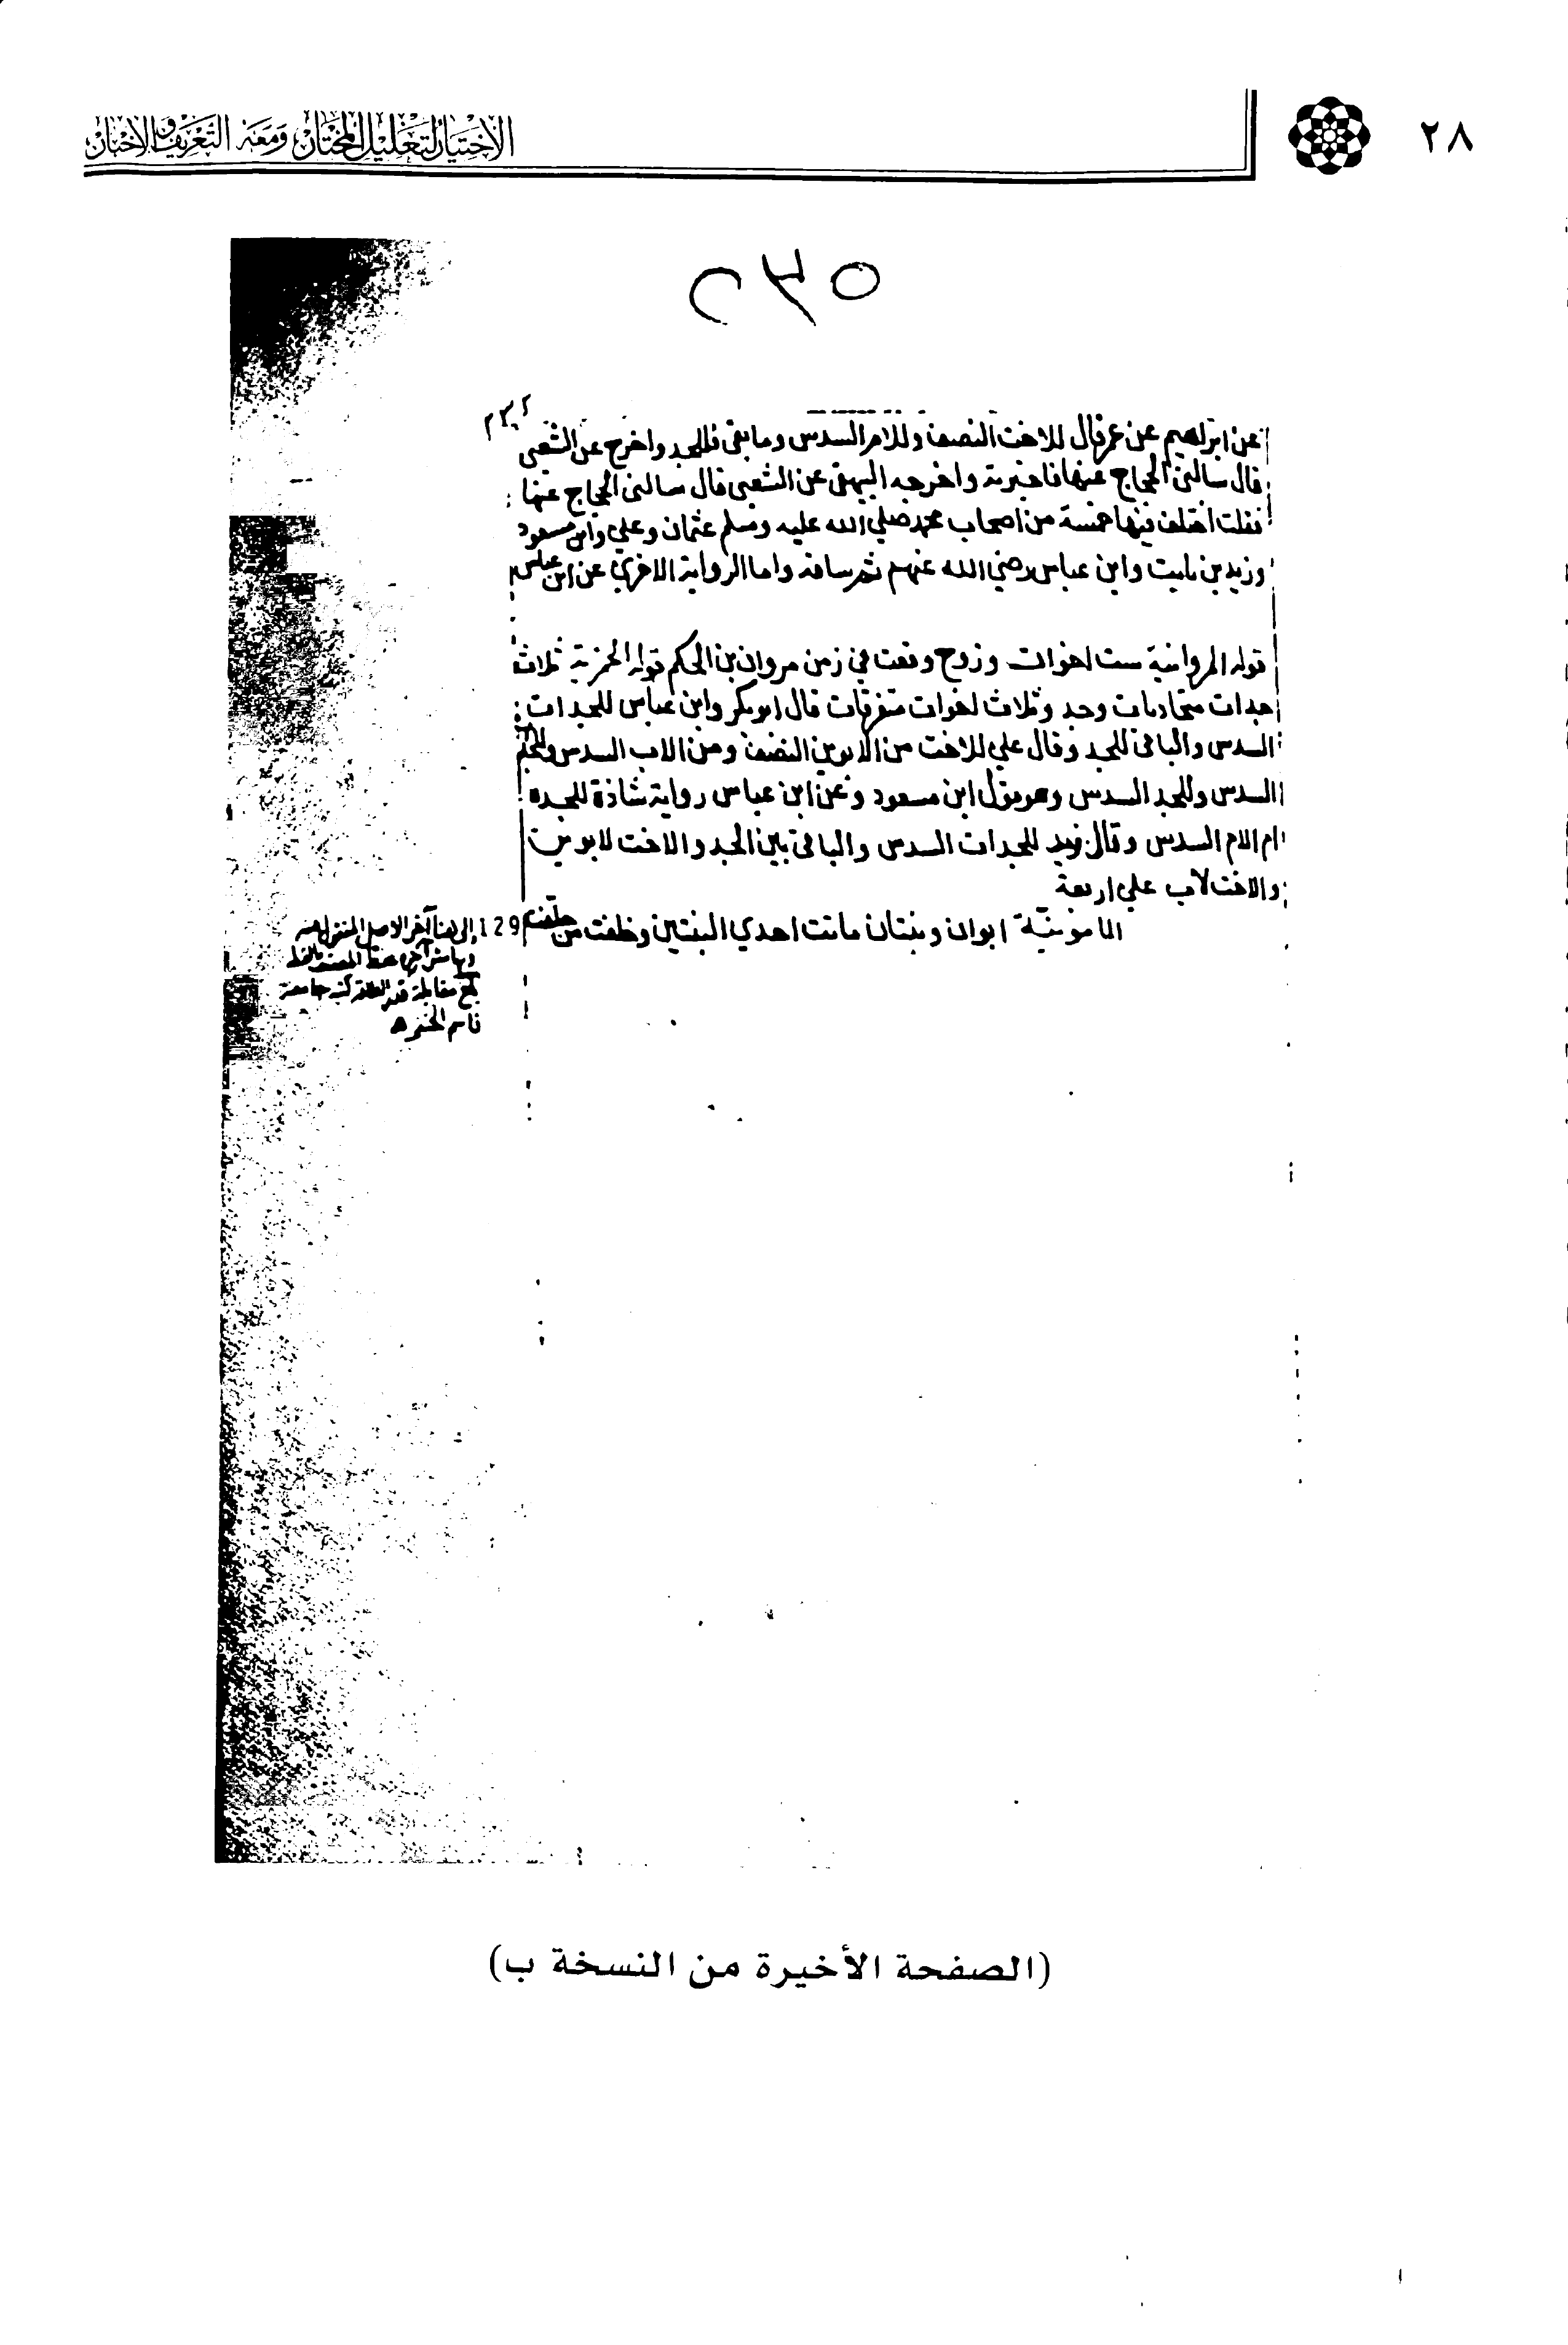 ٢٨
الاختيار لتعليل المختار ومعه التعريف والاخبار
٢٣٥
عن ابراهيم عن عمر قال للاخت النصف وللام السدس وما بقي فللجد واخرج عن الشعبي
قال سالني الحجاج عنها فاخبرته واخرجه البيهقي عن الشعبي قال سالني الحجاج عنها
فقلت اختلف فيها خمسة من اصحاب محمد صلي الله عليه وسلم عثمان وعلي وابن مسعود
وزيد بن ثابت وابن عباس رضي الله عنهم ثم ساقه واما الرواية الاخري عن ابن عباس
قوله المروانية ست اخوات وزوج وقعت في زمن مروان بن الحكم قوله الحمزية ثلاث
جدات متحاذيات وجد وثلاث اخوات متفرقات قال ابو بكر وابن عباس للجدات
السدس والباقي للجد وقال علي للاخت من الابوين النصف ومن الاب السدس وللجدات
السدس وللجد السدس وهو قول ابن مسعود وعن ابن عباس رواية شاذة للجدة
ام الام السدس وقال زيد للجدات السدس والباقي بين الجد والاخت لابوين
والاخت لاب علي اربعة
المامونية ابوان وبنتان ماتت احدي البنتين وخلفت من خلفت
129 إلى هنا آخر الاصل المنقول منه
وبهامش آخره بخط المصنف
بلغ مقابلة كتبه جامعه
قاسم الحنفي
(الصفحة الأخيرة من النسخة ب)